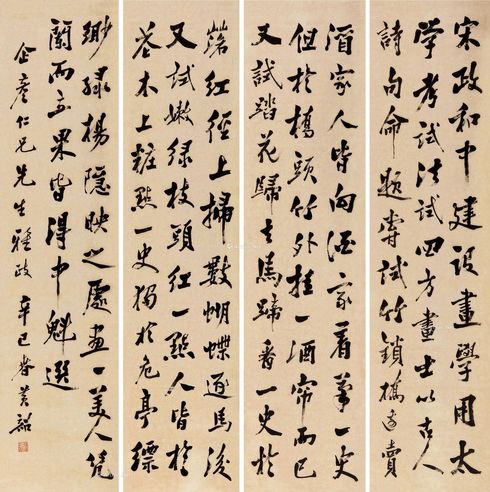 宋政和中建設畫學用太
学考試法試四方畫士以古人
詩句命題嘗試竹鎖橋邊賣
酒家人皆向酒家着筆一史
但於橋頭竹外挂一酒帘而已
又試踏花歸去馬蹄香一史於
落紅徑上掃數蝴蝶逐馬後
又試嫩緑枝頭紅一點人皆於
花木上粧點一史獨於危亭縹
緲緑楊隱映之處畫一美人凭
闌而立果皆得中魁選
企彥仁兄先生雅政 辛巳春